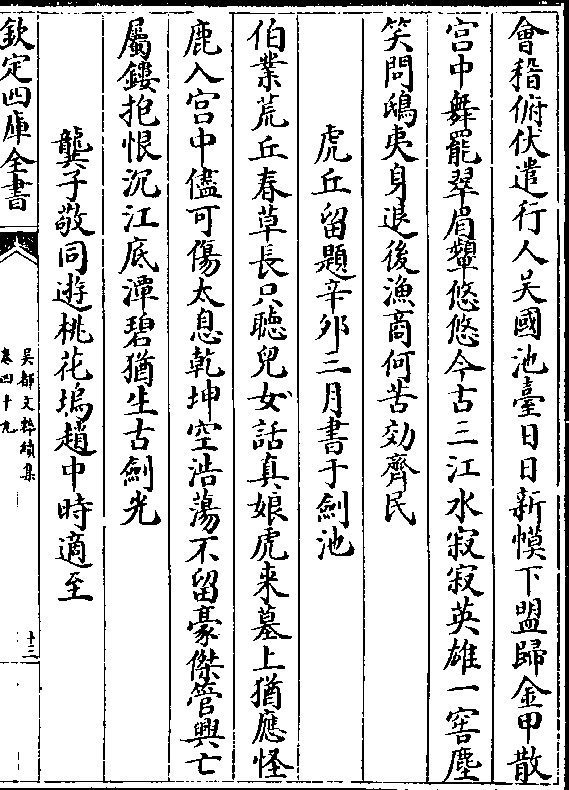 會稽俯伏遣行人吴國池臺日日新幙下盟歸金甲散
宫中舞罷翠眉顰悠悠今古三江水寂寂英雄一窖塵
笑問鴟夷身退後漁商何苦効齊民
虎丘留題辛夘三月書于劍池
伯業荒丘春草長只聽兒女話真娘虎来墓上猶應怪
鹿入宫中儘可傷太息乾坤空浩蕩不留豪傑管興亡
屬鏤抱恨沉江底潭碧猶生古劍光
龔子敬同遊桃花塢趙中時適至
欽定四庫全書
吴都文粹續集
卷四十九
十三